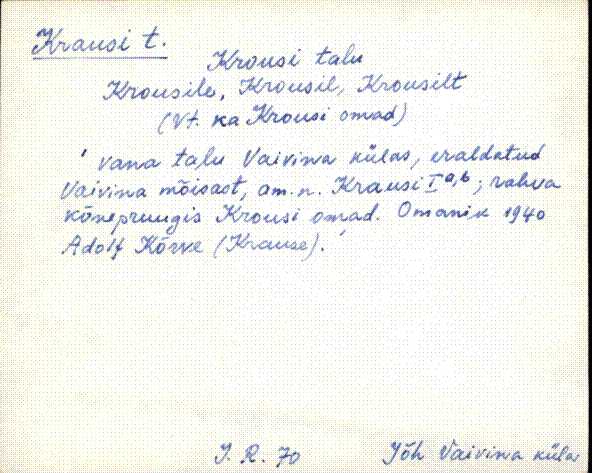 Krausi t.
Krousi talu
Krousile, Krousil, Krousilt
(vt. ka Krousi omad)
' vana talu Vaivina külas, eraldatud
Vaivina mõisast, am. n. Krausi I a,b; rahva
kõnepruugis Krousi omad. Omanik 1940
Adolf Kõrve (Krause). '
J. R. 70
Jõh Vaivina küla